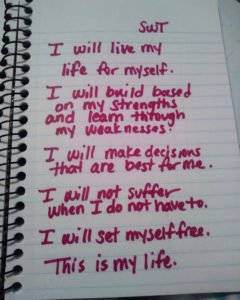 SWT
I will live my
life for myself.
I will build based
on my strengths
and learn through
my weaknesses.
I will make decisions
that are best for me.
I will not suffer
when I do not have to.
I will set myself free.
This is my life.